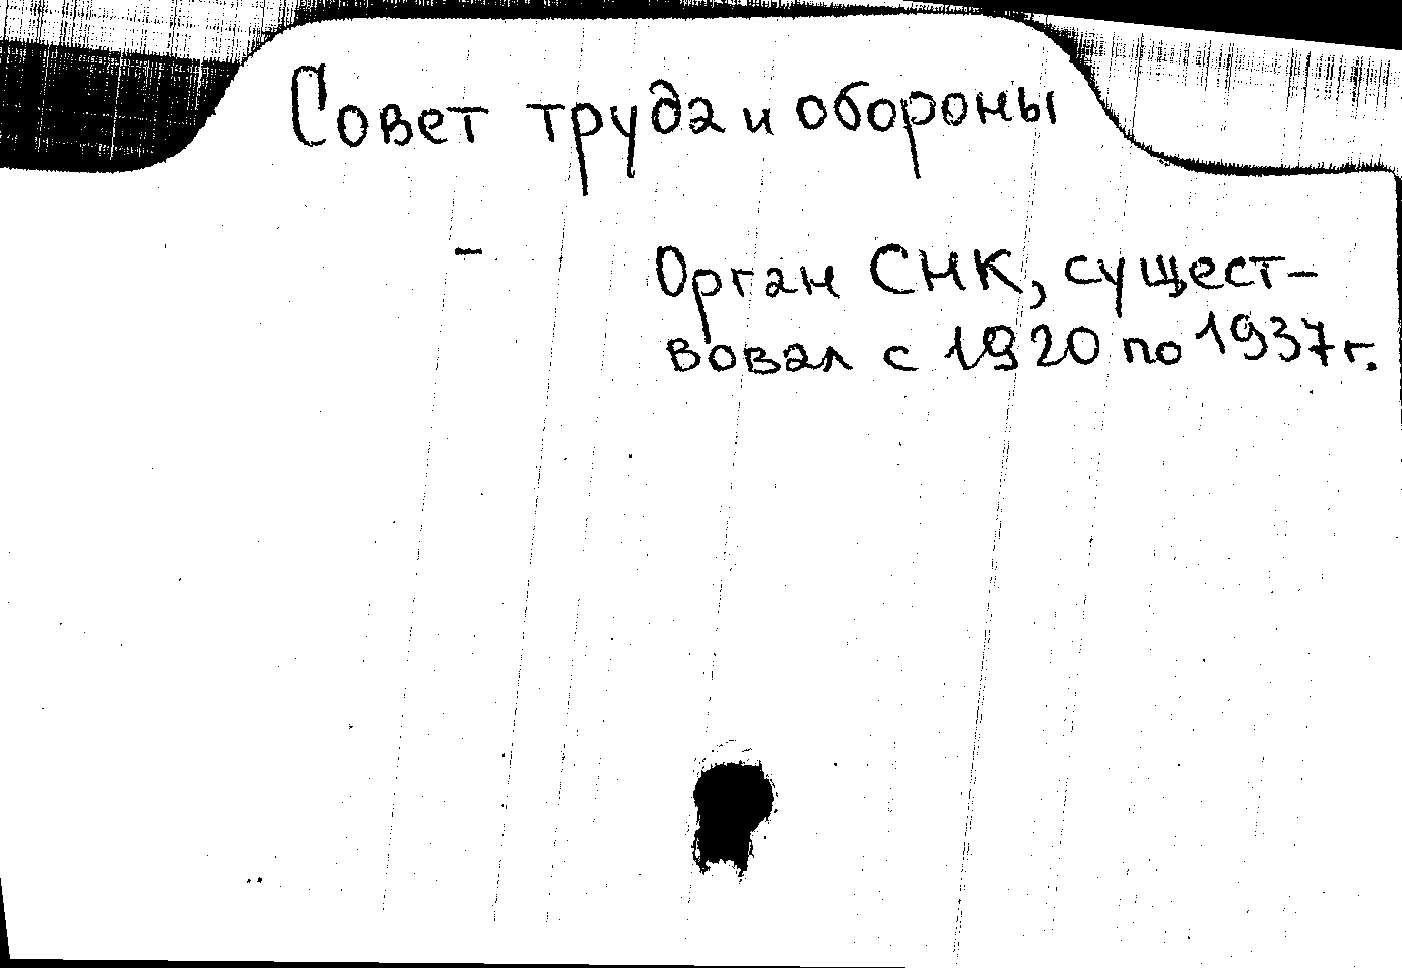 Совет труда и обороны
- Орган СНК, сущест-
вовал с 1920 по 1937 г.